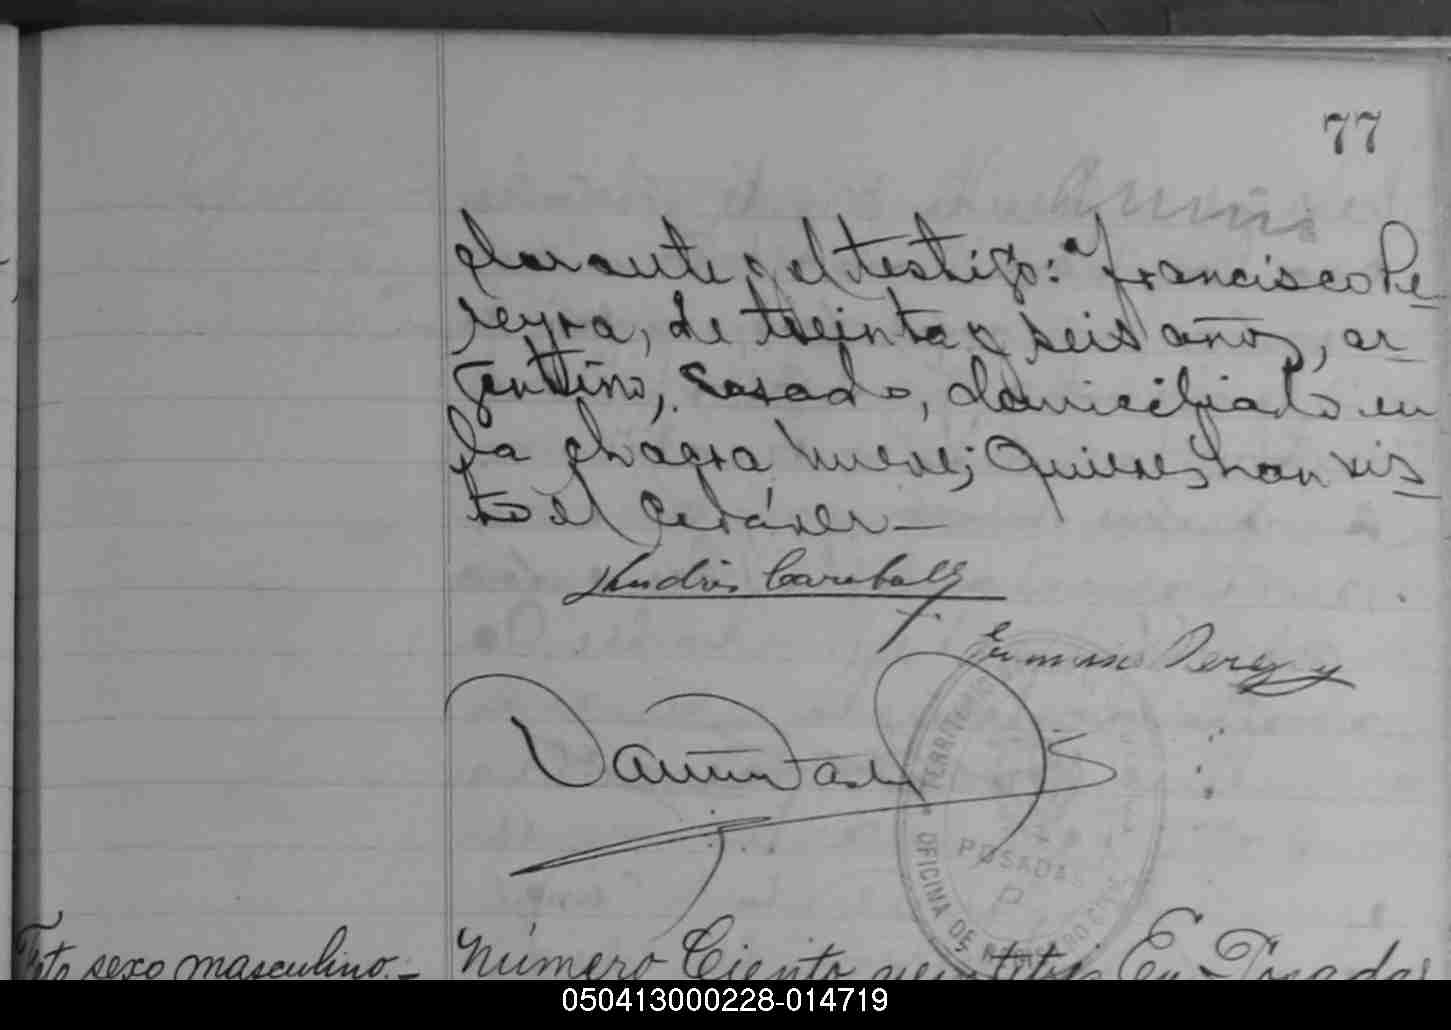 77
clarante y el testigo: Francisco Pe-
reyra, de treinta y seis años, ar-
gentino, casado, domiciliato en
la chágra nueve; Quienes han vis-
to el cadáver—
Andrés Caraballo
Francisco Pereyra
TERRITORIO
POSADAS
OFICINA DE REGISTRO CIVIL
Feto sexo masculino.—
Número Ciento veintitrés En Posadas
050413000228-014719